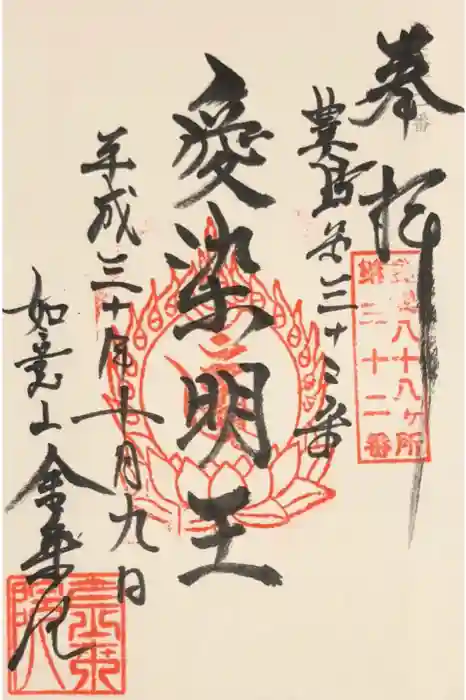 奉拝
豊島八十八ヶ所
第三十二番
豊島第三十二番
愛染明王
平成三十年十月九日
如意山金乗院
金乗院